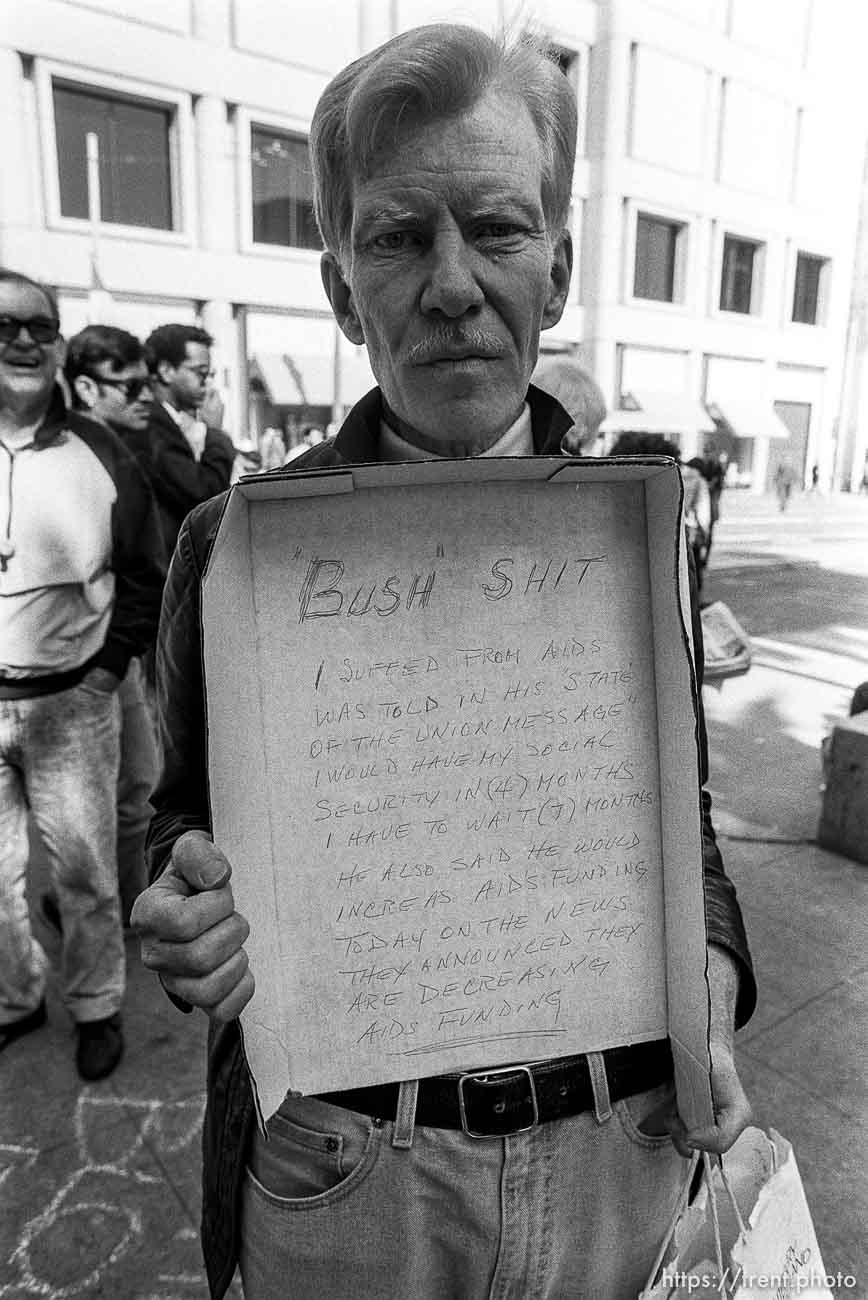 "BUSH" SHIT
I SUFFED FROM AIDS
WAS TOLD IN HIS "STATE
OF THE UNION MESSAGE"
I WOULD HAVE MY SOCIAL
SECURITY IN (4) MONTHS
I HAVE TO WAIT (7) MONTHS
HE ALSO SAID HE WOULD
INCREAS AIDS FUNDING
TODAY ON THE NEWS
THEY ANNOUNCED THEY
ARE DECREASING
AIDS FUNDING
https://trent.photo